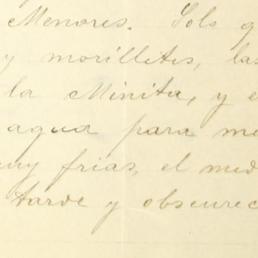 Menores. Sols q
y morilletes, las
la Minita, y e
agua para me
uny frias, el med
tarde y obscurec